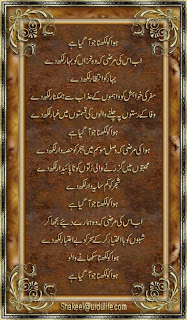 ہوا کو لکھنا جو آ گیا ہے
اب اس کی مرضی کہ وہ خزاں کو بہار لکھ دے
بہار کو انتظار لکھ دے
سفر کی خواہش کو واہموں کے عذاب سے ہمکنار لکھ دے
وفا کے رستوں پہ چلنے والوں کی قسمتوں میں غبار لکھ دے
ہوا کو لکھنا جو آ گیا ہے
ہوا کی مرضی کہ وصل موسم میں ہجر کو حصہ دار لکھ دے
محبتوں میں گزرنے والی رتوں کو ناپائیدار لکھ دے
شجر کو کم سایہ دار لکھ دے
ہوا کو لکھنا جو آ گیا ہے
اب اس کی مرضی کہ وہ ہمارے دیئے بجھا کر
شبوں کو با اختیار کر کے سحر کو بے اعتبار لکھ دے
ہوا کو لکھنا سکھانے والو
ہوا کو لکھنا جو آ گیا ہے
Shakeel@urdulife.com